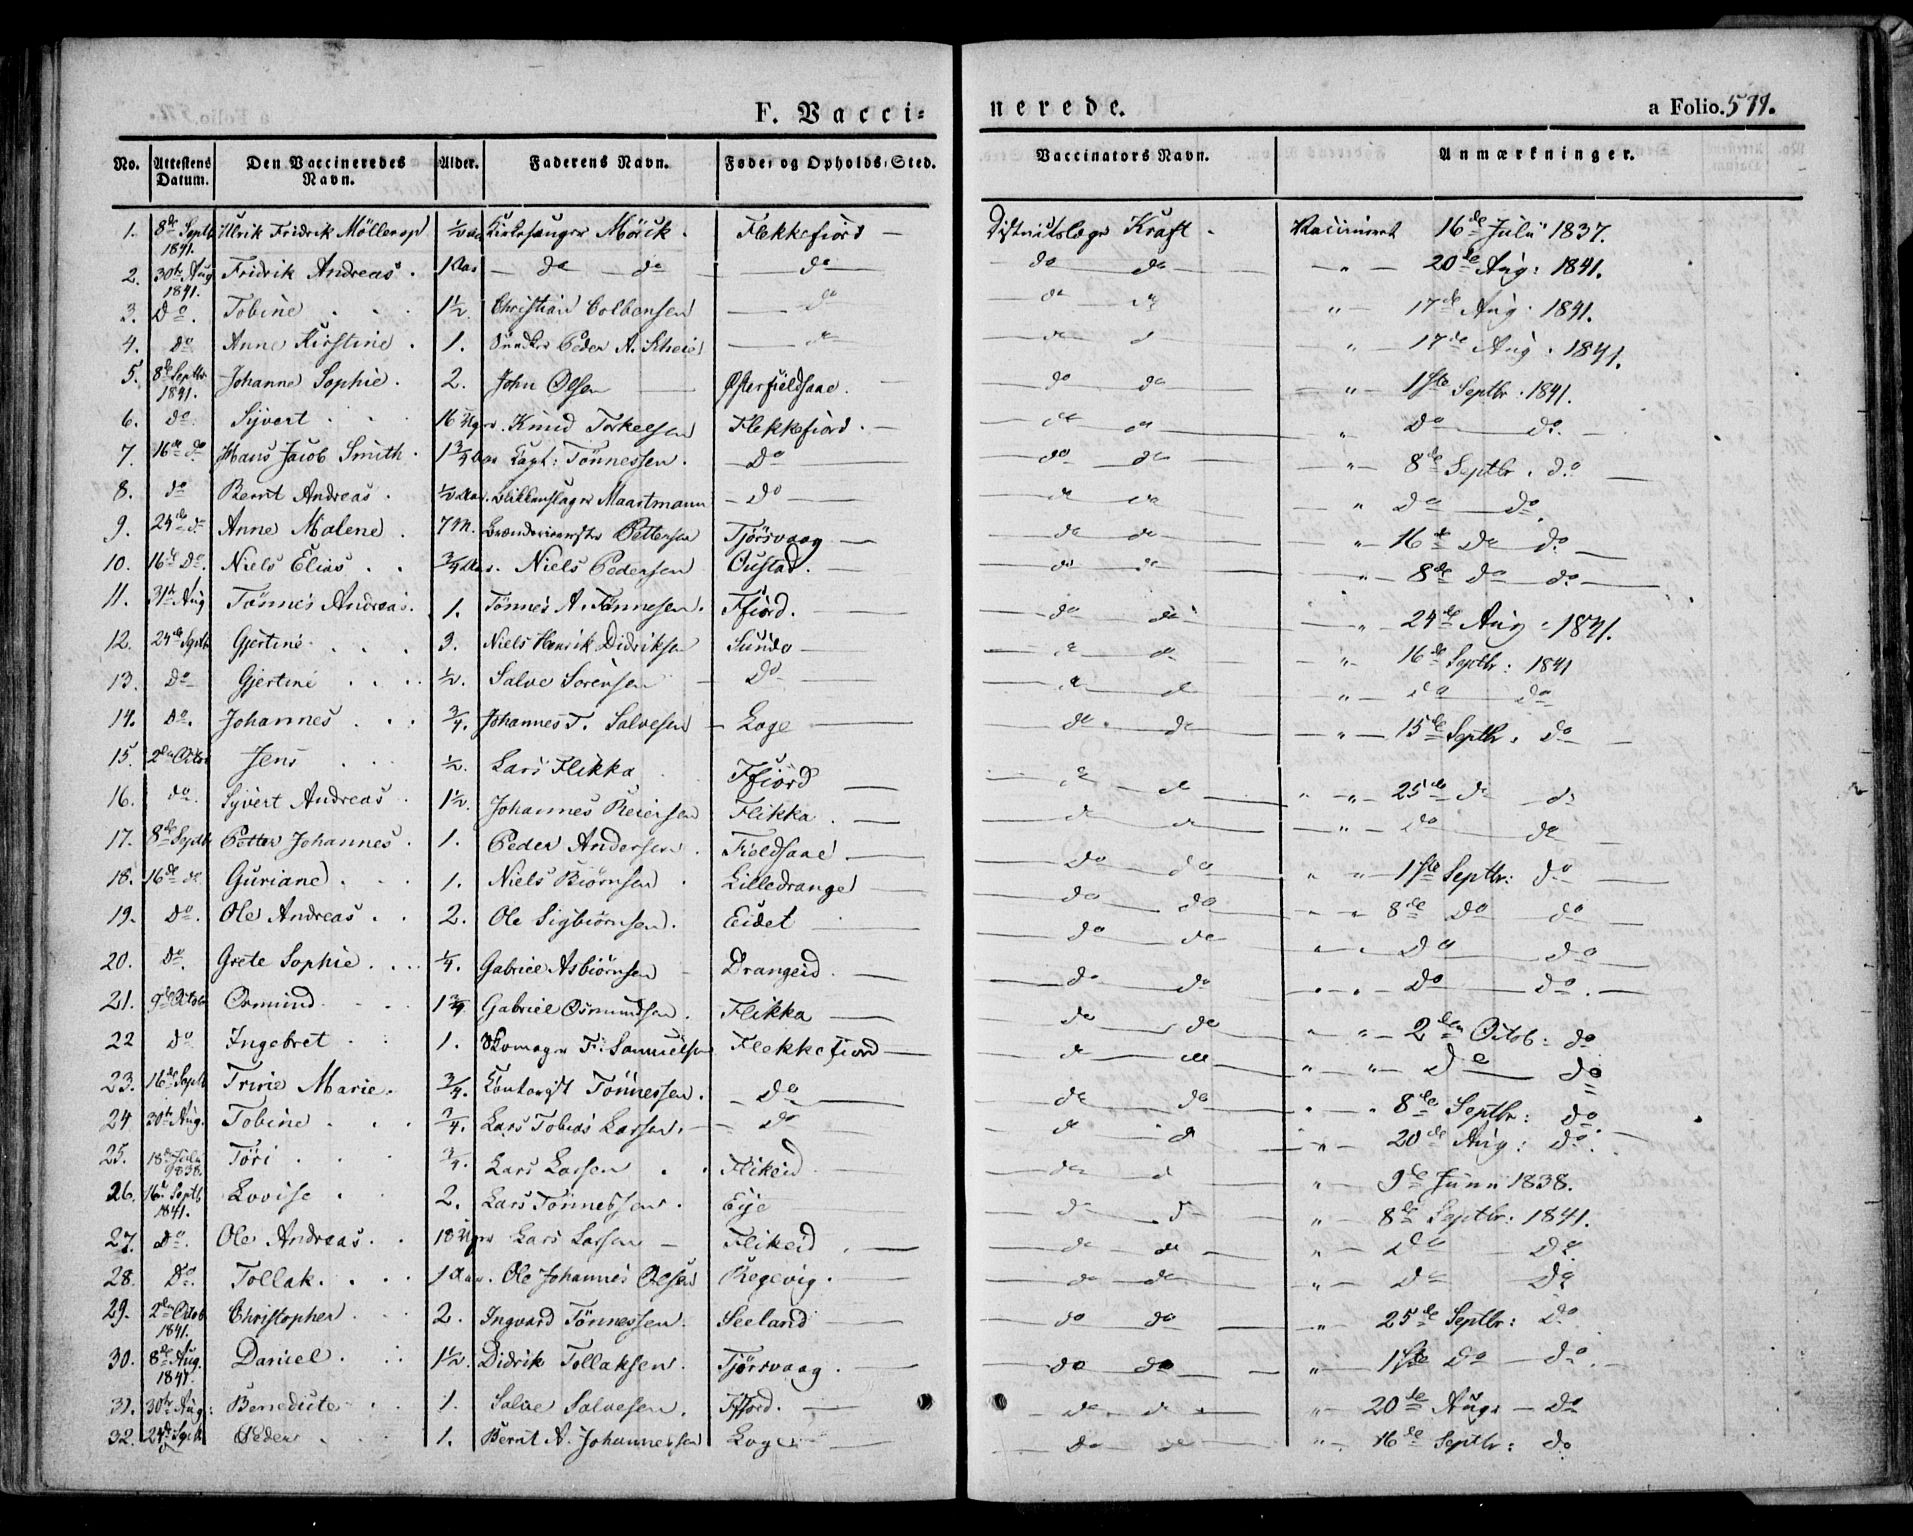 F. Vacci= nerede. a Folio.
No. Attestens Datum. Den Vaccineredes Navn. Alder. Faderens Navn. Føde- og Opholds-Sted. Vaccinators Navn. Anmærkninger.
1. 8de Septb 1841. Ulrik Fridrik Möllerop ½ Mörck. Flekkefiord — Districtslæge Kraft. Vaccineret 16de Julii 1837.
2. 30te Aug 1841. Fridrik Andreas. 1 — do — do do do do — " — 20de Aug: 1841.
3. Do. Tobine 1½. Christian Colbensen — do do do " — 17de Aug: 1841.
4. do Anne Kirstine. 1. Peder A. — do do d " 17de Aug. 1841.
5. 8de Septbr 1841. Johanne Sophie. 2. John Olsen Østerfieldsaae. do do " 1ste Septbr. 1841.
6. do. Syvert 16 Knud Torkelsen Flekkefiord. do do " Do do.
7. 16de do Hans Jacob Smith. 1¾ Capt: Tönnessen. — Do do do " — 8de Septbr. do
8. do Bernt Andreas. ½ Blikkenslager Maartmann — do do do " do do
9. 24de do Anne Malene 7 M. Pettersen Tjörsvaag — do do " — 16de Do do.
10. 16de Do. Niels Elias ¾ Niels Pedersen Oustad. — do do " — 8de Do do
11. 31te Aug Tönnes Andreas. 1. Tönnes A. Tönnesen. Ffiord. do do " 24de Aug: 1841.
12. 24de Septb Gjertine 3. Niels Henrik Didriksen Sunde do do — " — 16de Septbr: 1841
13. Do Gjertine ½. Salve Sorensen Do do do " do do
14. Do. Johannes ¾. Johannes T. Salvesen — Loge do. do — " — 15de Septbr. do
15. 2den Octbr Jens ½. Lars Flikka Ffiord do do " — " — 25de do do
16. do. Syvert Andreas 1½. Johannes Reiersen Flikka. — do do — " — Do do
17. 8de Septb Petter Johannes. 1. Peder Andersen. Fieldsaae do do " " — 1ste Septbr: do
18. 16de do Guriane 1. Niels Biörnsen Lilledrange do do — " — " 8de Do do
19. Do. Ole Andreas. 2. Ole Sigbiörnsen. Eidet do do " " Do do
20. Do. Grete Sophie ¼. Gabriel Asbiörnsen — Drangeid. — do do " " — Do do.
21. 9de Octbr Osmund 1¾ Gabriel Osmundsen. Flikka — do do " " — 2den Octob: do
22 Do Ingebret 1. Skomager F. Samuelsen Flekkefiord — do do " " — do do
23. 16de Septb Trine Marie. ¾. Tönnessen. — Do do do " " 8de Septbr: do.
24 30te Aug. Tobine ¾. Lars Tobias Larsen. — do do do " — 20de Aug: do.
25. 18de Julii 1838. Töri ¾. Lars Larsen Flikeid do d " 9de Junii 1838.
26. 16de Septb 1841. Lovise 2. Lars Tönnessen. Eije do do " 8de Septbr: 1841.
27. Do. Ole Andreas. 18 Lars Larsen — Flikeid. do do — " — Do Do.
28. Do. Tollak. 1 Ole Johannes Olsen Regevig. do do " — Do Do
29. 2den Octob 1841. Christopher 2. Ingvard Tönnessen. Seeland do do " — 25de Septbr: Do
30. 8de Aug. 1841. Daniel. 1½. Didrik Tollaksen. Tjörsvaag. do do " — 1ste Do — do.
31. 30te Aug: Benedicte 1. Salve Salvesen. Ffiord. — do do " — 20de Aug: — do
32. 24de Septb Peder 1. Bernt A. Johannessen Loge do do " — 16de Septbr: do